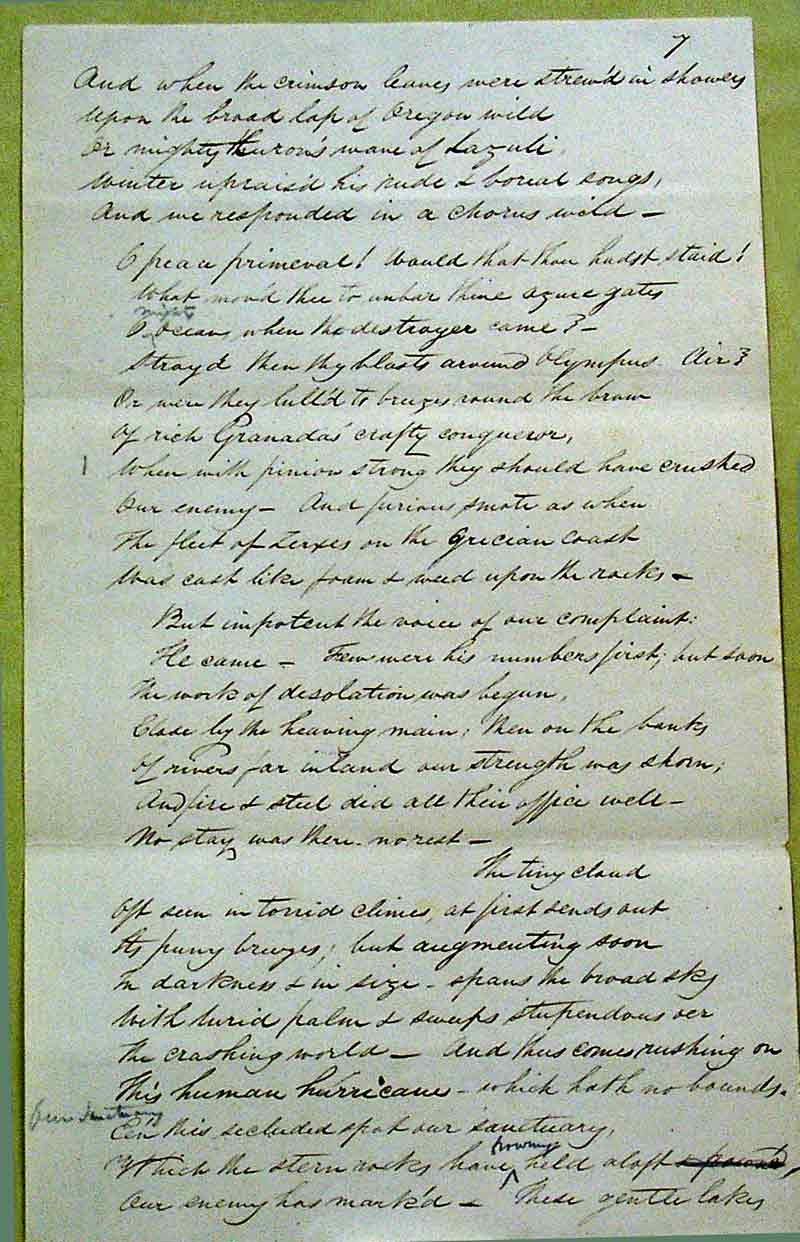 7
And when the crimson leaves were strew'd in showers
Upon the broad lap of Oregon wild
Or mighty Huron's wave of Lazuli,
Winter uprais'd his rude & boreal songs,
And we responded in a chorus wild —
O peace primeval! Would that thou hadst staid!
What mov'd thee to unbar thine azure gates
mighty
O Ocean, when the destroyer came? —
Stray'd then thy blasts around Olympus Air?
Or were they lull'd to breezes round the brow
Of rich Granada's crafty conqueror,
When with pinion strong they should have crushed
Our enemy — And furious smote as when
The fleet of Xerxes on the Grecian coast
Was cast like foam & weed upon the rocks —
But impotent the voice of our complaint:
He came — Few were his numbers first; but soon
The work of desolation was begun,
Close by the heaving main; then on the banks
Of rivers far inland our strength was shorn;
And fire & steel did all their office well —
No stay, was there. no rest —
The tiny cloud
Oft seen in torrid climes, at first sends out
Its puny breezes; but augmenting soon
In darkness & in size — spans the broad sky
With lurid palm & sweeps stupendous oer
The crashing world — And thus comes rushing on
This human hurricane — which hath no bounds.
Our Sanctuary
E'en this secluded spot our sanctuary,
frowning
Which the stern rocks have held aloft
Our enemy has mark'd — These gentle lakes